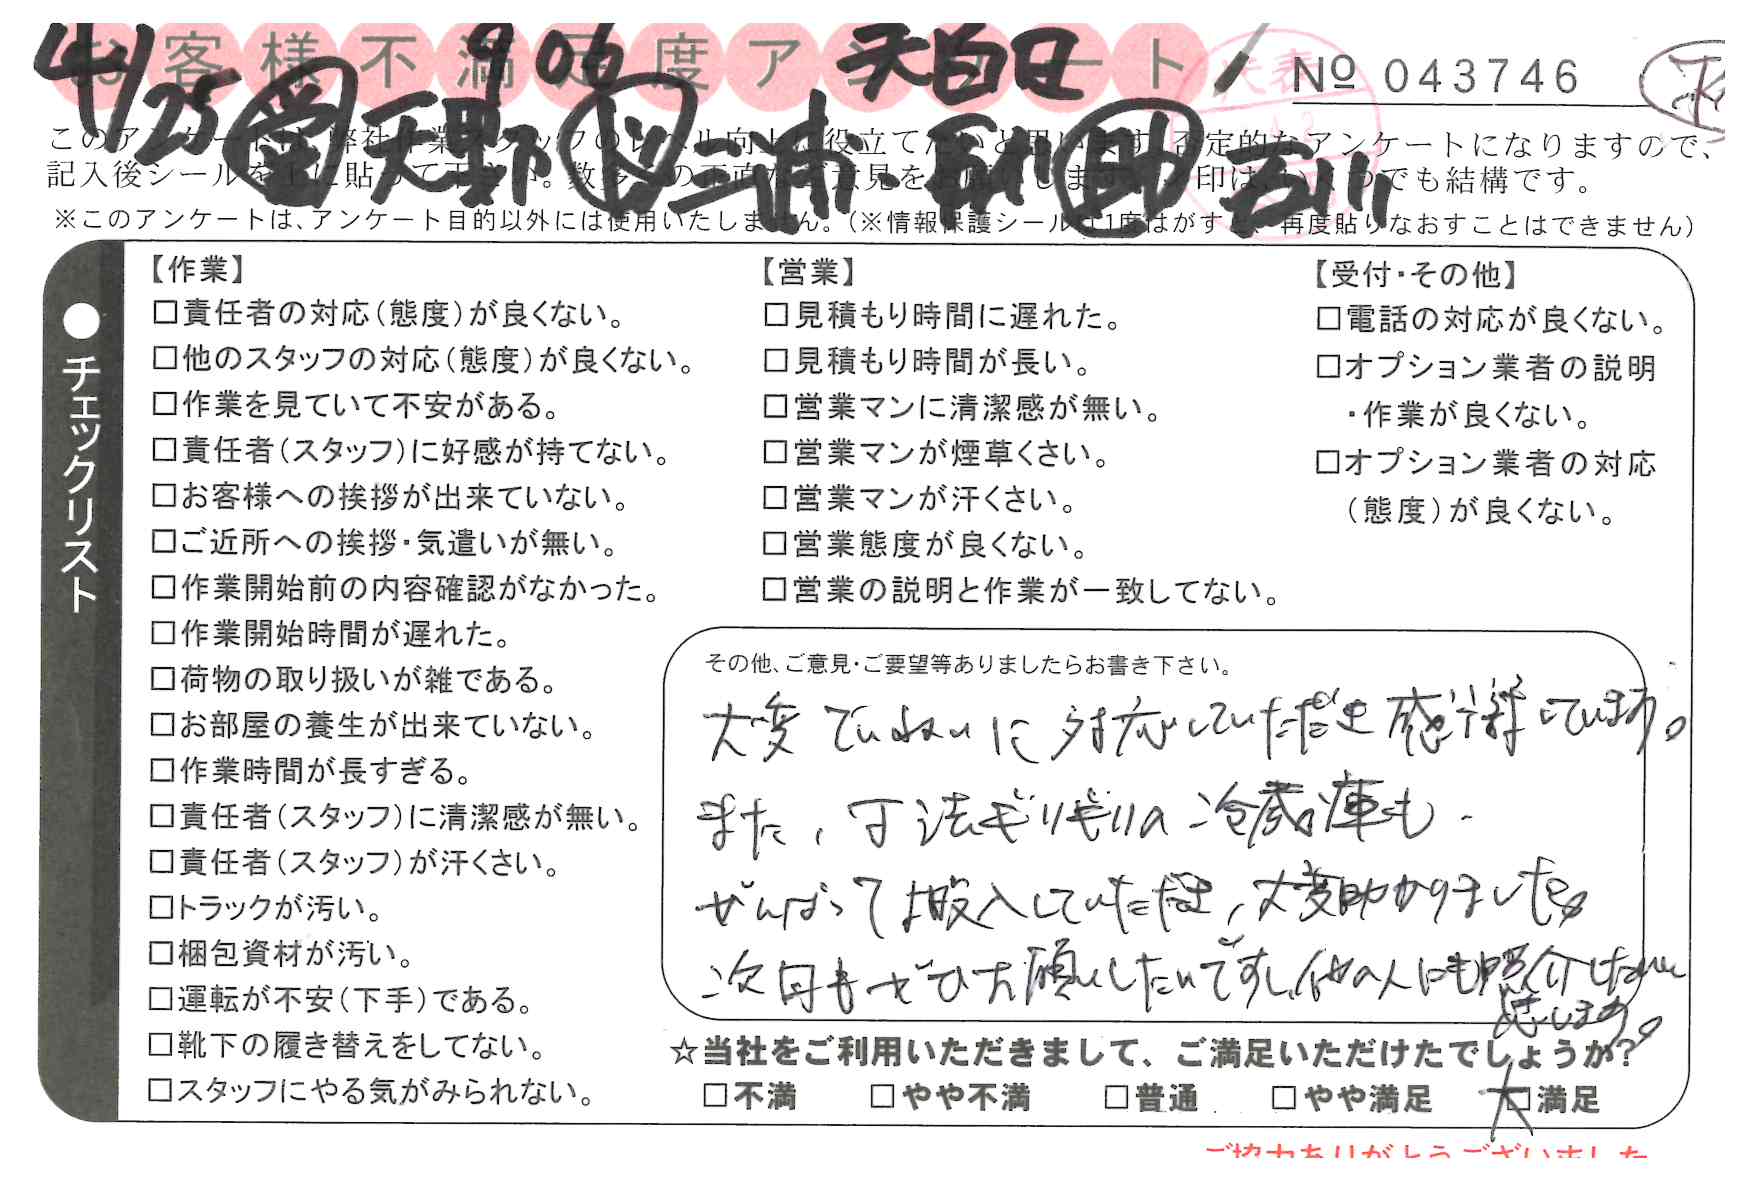 お客様不満足度アンケート
4/25 906 天白区
No 043746
受 天野 三浦 助 吉川
このアンケートは、弊社作業スタッフのレベル向上に役立てたいと思います。否定的なアンケートになりますので、
記入後シールを上に貼って下さい。数多くの正直なご意見をお願いします。レ印は、いくつでも結構です。
※このアンケートは、アンケート目的以外には使用いたしません。(※情報保護シールは1度はがすと、再度貼りなおすことはできません)
●チェックリスト
【作業】
□責任者の対応(態度)が良くない。
□他のスタッフの対応(態度)が良くない。
□作業を見ていて不安がある。
□責任者(スタッフ)に好感が持てない。
□お客様への挨拶が出来ていない。
□ご近所への挨拶・気遣いが無い。
□作業開始前の内容確認がなかった。
□作業開始時間が遅れた。
□荷物の取り扱いが雑である。
□お部屋の養生が出来ていない。
□作業時間が長すぎる。
□責任者(スタッフ)に清潔感が無い。
□責任者(スタッフ)が汗くさい。
□トラックが汚い。
□梱包資材が汚い。
□運転が不安(下手)である。
□靴下の履き替えをしてない。
□スタッフにやる気がみられない。
【営業】
□見積もり時間に遅れた。
□見積もり時間が長い。
□営業マンに清潔感が無い。
□営業マンが煙草くさい。
□営業マンが汗くさい。
□営業態度が良くない。
□営業の説明と作業が一致してない。
【受付・その他】
□電話の対応が良くない。
□オプション業者の説明
・作業が良くない。
□オプション業者の対応
(態度)が良くない。
その他、ご意見・ご要望等ありましたらお書き下さい。
大変ていねいに対応していただき感謝しています。
また、寸法ギリギリの冷蔵庫も
がんばって搬入していただき、大変助かりました。
次回もぜひお願いしたいですし、他の人にも紹介したいと
思います。
☆当社をご利用いただきまして、ご満足いただけたでしょうか?
□不満 □やや不満 □普通 □やや満足 大 □満足
ご協力ありがとうございました